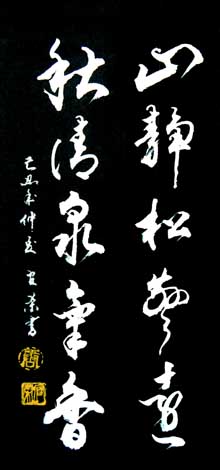 山静松声远
秋清泉气香
己丑年仲夏 宜荣书